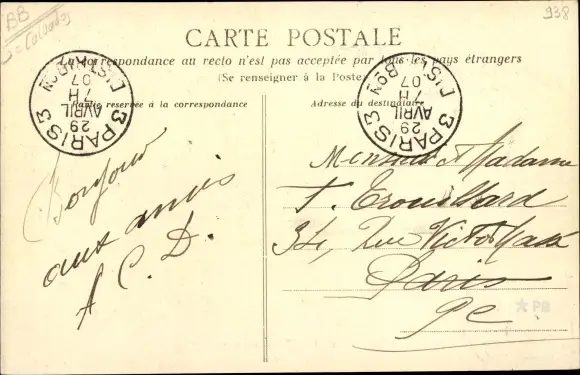 BB
Calvados
938
CARTE POSTALE
La correspondance au recto n'est pas acceptée par tous les pays étrangers
(Se renseigner à la Poste
Partie reservée à la correspondance
Adresse du destinataire
3 PARIS 3
29
AVRIL
7H
07
3 PARIS 3
29
AVRIL
7H
07
Bonjour
aux amis
A C. D.
Monsieur et Madame
T. Trouillard
34, Rue Victor Massé
Paris
PC